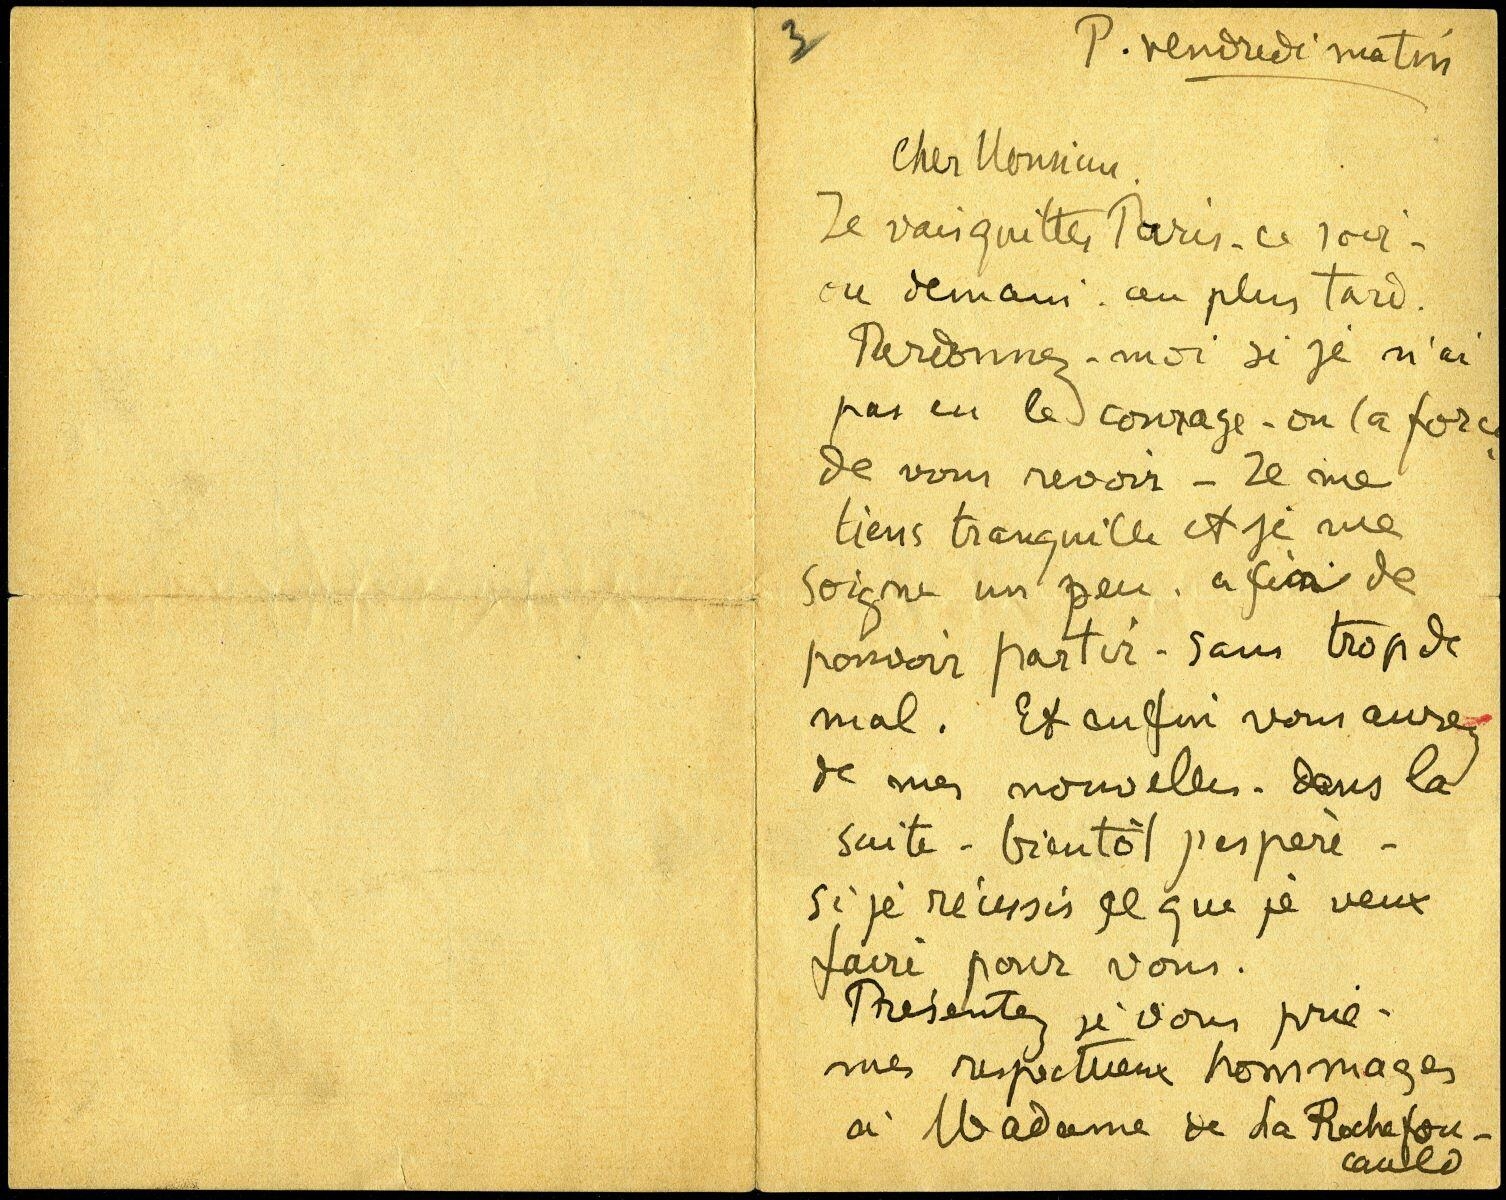 3
P. vendredi matin
Cher Monsieur.
Je vais quitter Paris - ce soir -
ou demain. au plus tard.
Pardonnez-moi si je n'ai
pas eu le courage - ou la force
de vous revoir - Je me
tiens tranquille et je me
soigne un peu. afin de
pouvoir partir - sans trop de
mal. Et enfin vous aurez
de mes nouvelles - dans la
suite - bientôt j'espère -
si je réussis ce que je veux
faire pour vous.
Présentez je vous prie -
mes respectueux hommages
à Madame de La Rochefou-
cauld